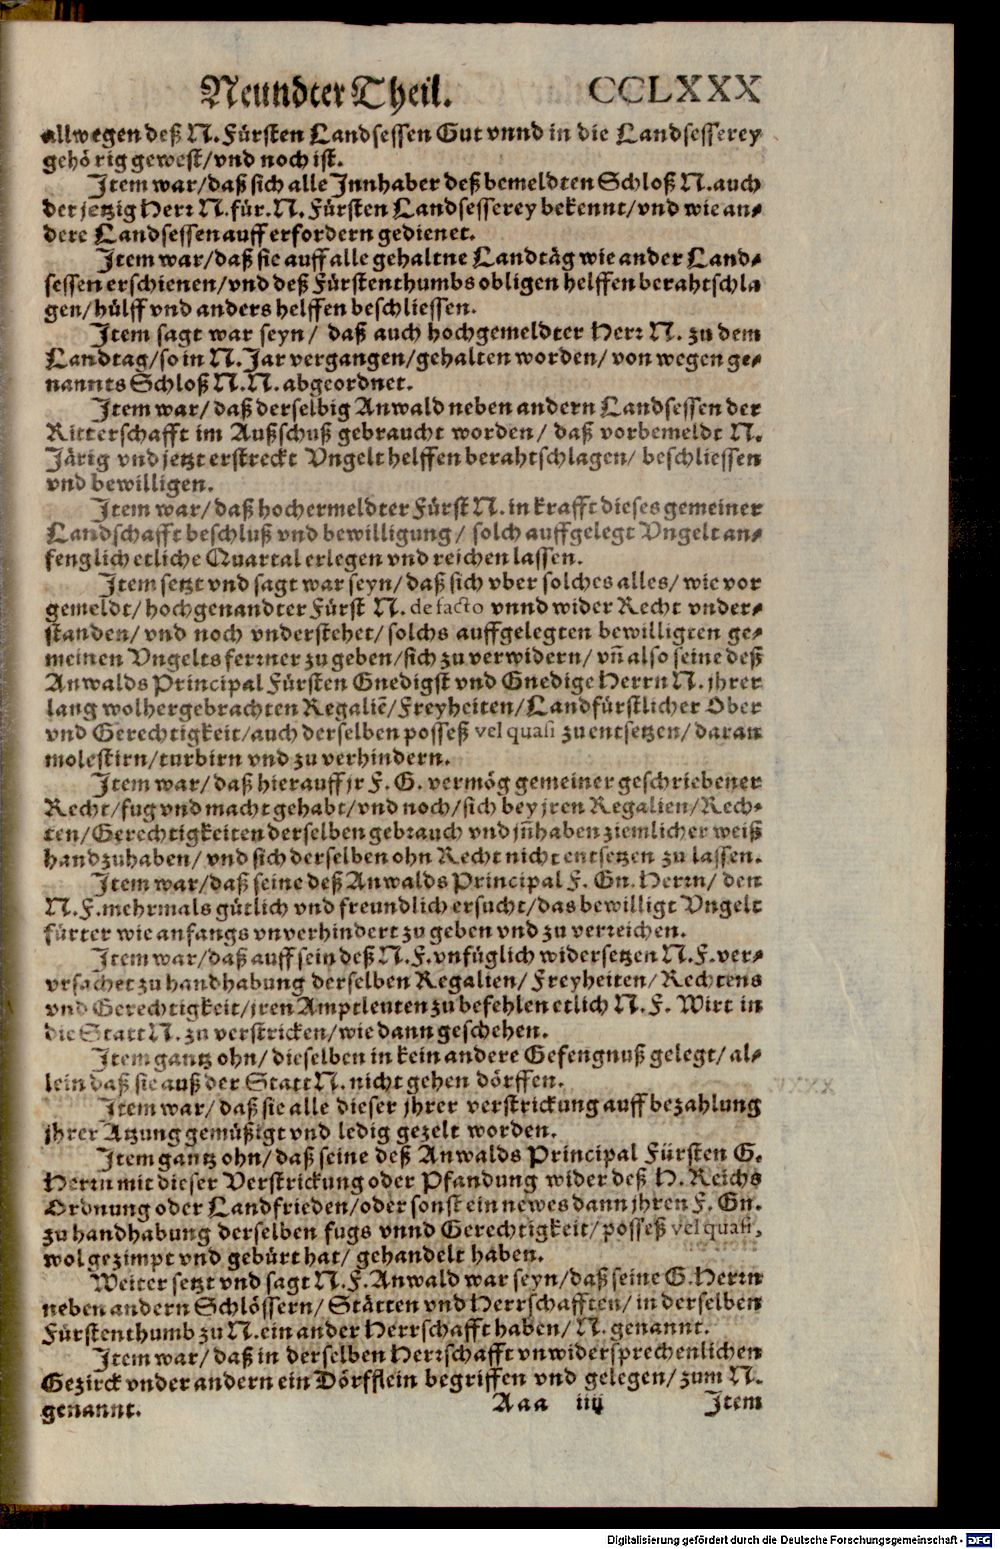 Neundter Theil. CCLXXX
allwegen deß N. Fürsten Landsessen Gut vnnd in die Landsesserey
gehörig gewest/vnd noch ist.
Item war/daß sich alle Innhaber deß bemeldten Schloß N. auch
der jetzig Herr N. für. N. Fürsten Landsesserey bekennt/vnd wie an-
dere Landsessen auff erfordern gedienet.
Item war/daß sie auff alle gehaltne Landtäg wie ander Land-
sessen erschienen/vnd deß Fürstenthumbs obligen helffen berahtschla
gen/hülff vnd anders helffen beschliessen.
Item sagt war seyn/ daß auch hochgemeldter Herr N. zu dem
Landtag/so in N. Jar vergangen/gehalten worden/ von wegen ge-
nannts Schloß N. N. abgeordnet.
Item war/ daß derselbig Anwald neben andern Landsessen der
Ritterschafft im Außschuß gebraucht worden/ daß vorbemeldt N.
Järig vnd jetzt erstreckt Vngelt helffen berahtschlagen/ beschliessen
vnd bewilligen.
Item war/daß hochermeldter Fürst N. in krafft dieses gemeiner
Landschafft beschluß vnd bewilligung/ solch auffgelegt Vngelt an-
fenglich etliche Quartal erlegen vnd reichen lassen.
Item setzt vnd sagt war seyn/daß sich vber solches alles/ wie vor
gemeldt/hochgenandter Fürst N. de facto vnnd wider Recht vnder-
standen/vnd noch vnderstehet/solchs auffgelegten bewilligten ge-
meinen Vngelts ferrner zu geben/sich zu verwidern/vñ also seine deß
Anwalds Principal Fürsten Gnedigst vnd Gnedige Herrn N. jhrer
lang wolhergebrachten Regaliē/Freyheiten/Landfürstlicher Ober
vnd Gerechtigkeit/auch derselben posseß vel quasi zu entsetzen/daran
molestirn/turbirn vnd zu verhindern.
Item war/daß hierauff jr F. G. vermög gemeiner geschriebener
Recht/fug vnd macht gehabt/vnd noch/sich bey jren Regalien/Rech-
ten/Gerechtigkeiten derselben gebrauch vnd jñhaben ziemlicher weiß
handzuhaben/vnd sich derselben ohn Recht nicht entsetzen zu lassen.
Item war/daß seine deß Anwalds Principal F. Gn. Herrn/ den
N. F. mehrmals gütlich vnd freundlich ersucht/das bewilligt Vngelt
fürter wie anfangs vnverhindert zu geben vnd zu verreichen.
Item war/daß auff sein deß N. F. vnfüglich widersetzen N. F. ver-
vrsachet zu handhabung derselben Regalien/ Freyheiten/Rechtens
vnd Gerechtigkeit/jren Amptleuten zu befehlen etlich N. F. Wirt in
die Statt N. zu verstricken/wie dann geschehen.
Item gantz ohn/ dieselben in kein andere Gefengnuß gelegt/ al-
lein daß sie auß der Statt N. nicht gehen dörffen.
Item war/ daß sie alle dieser jhrer verstrickung auff bezahlung
jhrer Atzung gemüßigt vnd ledig gezelt worden.
Item gantz ohn/daß seine deß Anwalds Principal Fürsten G.
Herrn mit dieser Verstrickung oder Pfandung wider deß H. Reichs
Ordnung oder Landfrieden/oder sonst ein newes dann jhren F. Gn.
zu handhabung derselben fugs vnnd Gerechtigkeit/posseß vel quasi,
wol gezimpt vnd gebürt hat/ gehandelt haben.
Weiter setzt vnd sagt N. F. Anwald war seyn/daß seine G. Herrn
neben andern Schlössern/ Stätten vnd Herrschafften/in derselben
Fürstenthumb zu N. ein ander Herrschafft haben/N. genannt.
Item war/daß in derselben Herrschafft vnwidersprechenlichen
Gezirck vnder andern ein Dörfflein begriffen vnd gelegen/zum N.
genannt. Aaa iiij Item
Digitalisierung gefördert durch die Deutsche Forschungsgemeinschaft - DFG